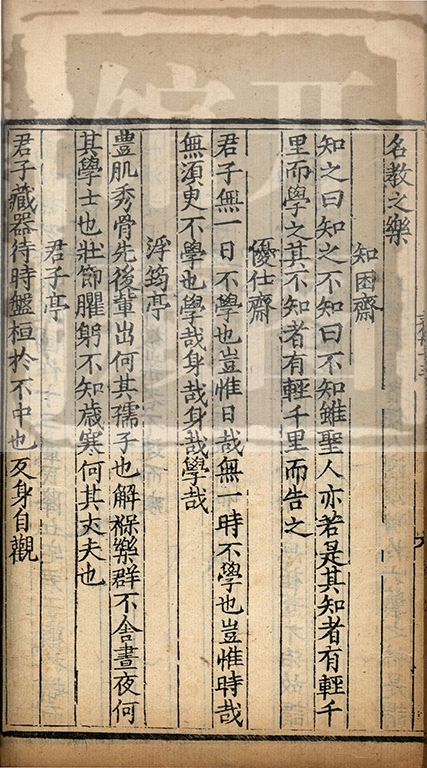 名教之樂
知困齋
知之曰知之不知曰不知雖聖人亦若是其知者有輕千
里而學之其不知者有輕千里而告之
優仕齋
君子無一日不學也豈惟日哉無一時不學也豈惟時哉
無湏臾不學也學哉身哉身哉學哉
浮筠亭
豊肌秀骨先後軰出何其孺子也解𥚹樂群不舎晝夜何
其學士也壯節臞躬不知歳寒何其丈夫也
君子亭
君子藏器待時盤桓於不中也反身自觀